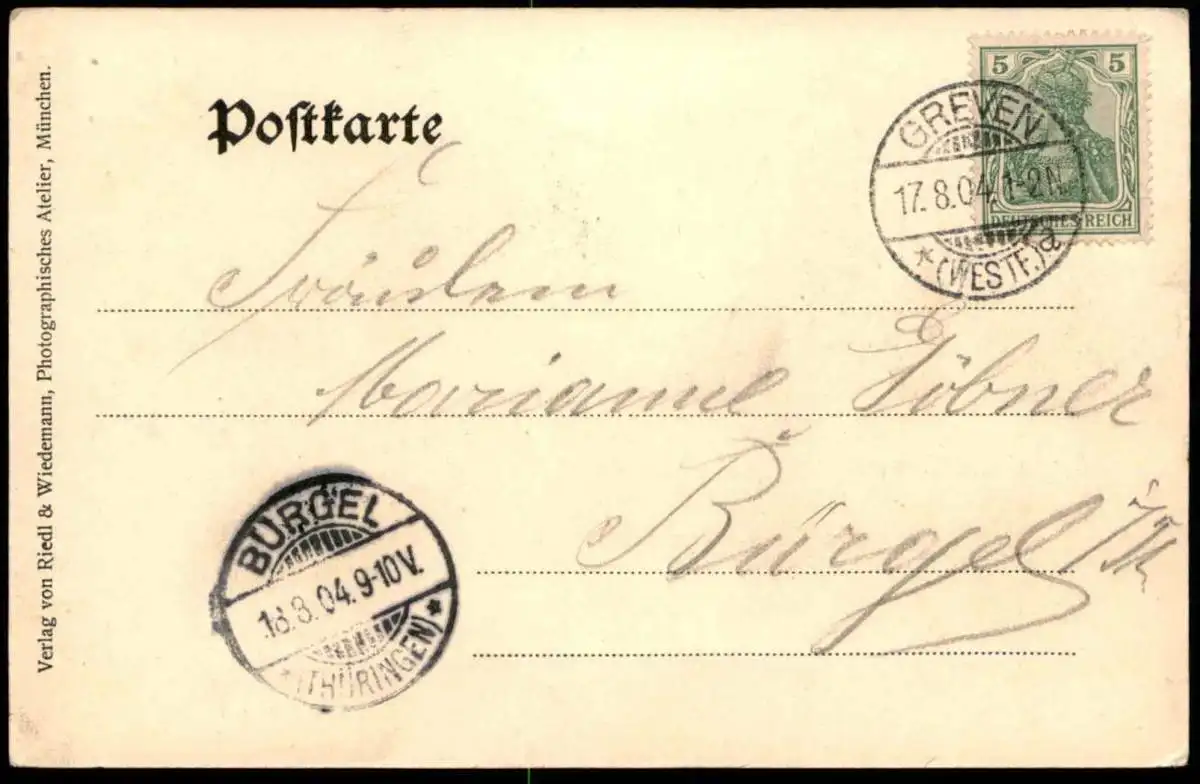 Postkarte
5 5
DEUTSCHES REICH
GREVEN
17.8.04.1-2N.
* (WESTF.) a
Fräulein
Marianne Löbner
Bürgel i/Th
BÜRGEL
18.8.04.9-10V.
* (THÜRINGEN) *
Verlag von Riedl & Wiedemann, Photographisches Atelier, München.